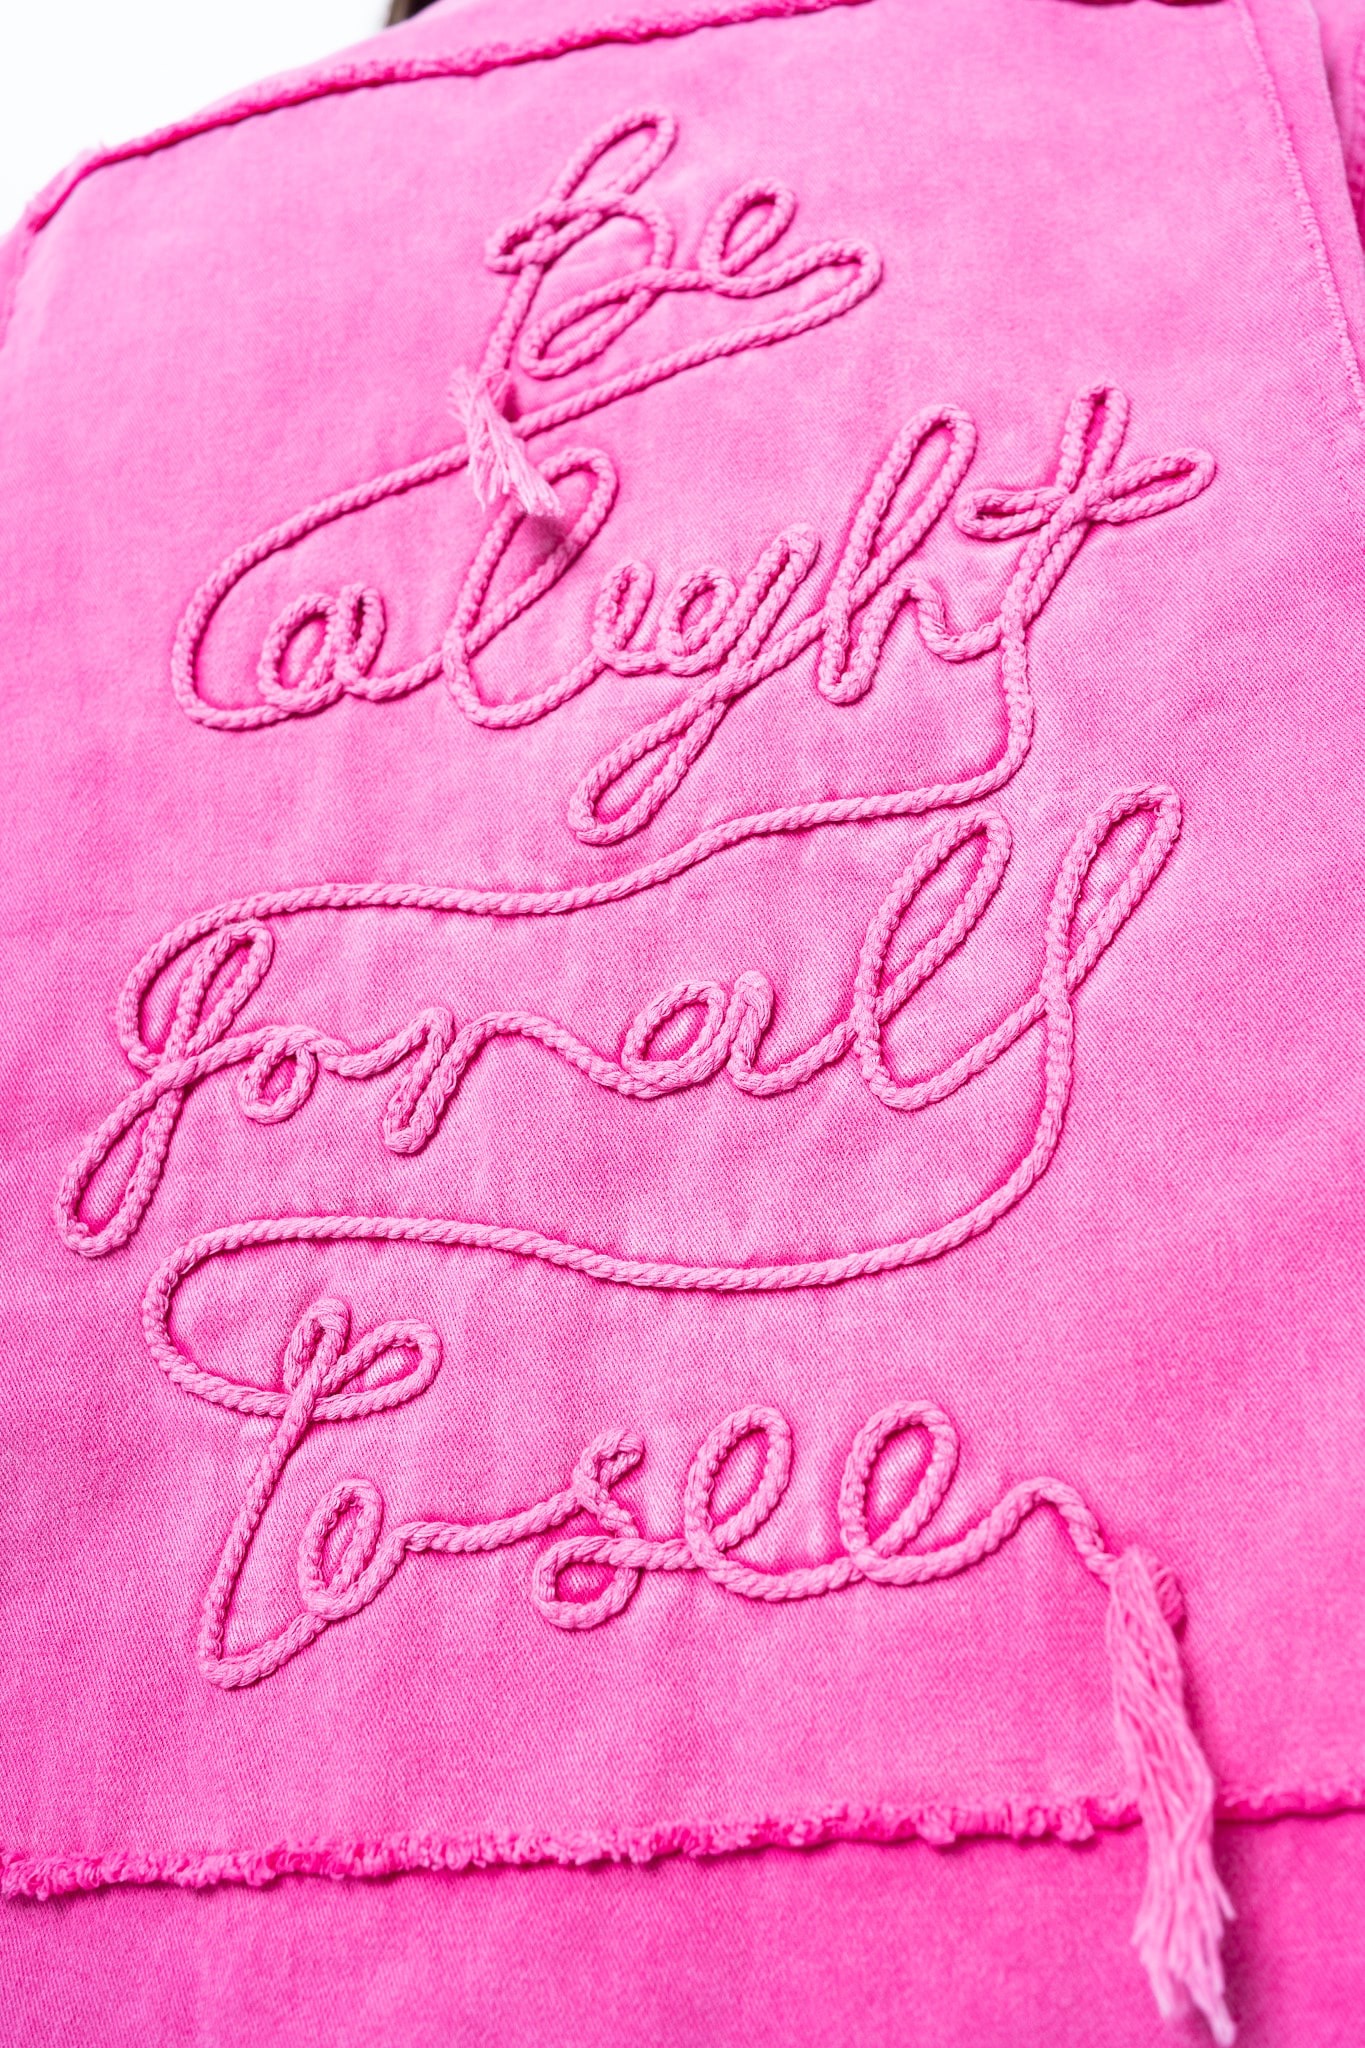 Be
a light
for all
to see